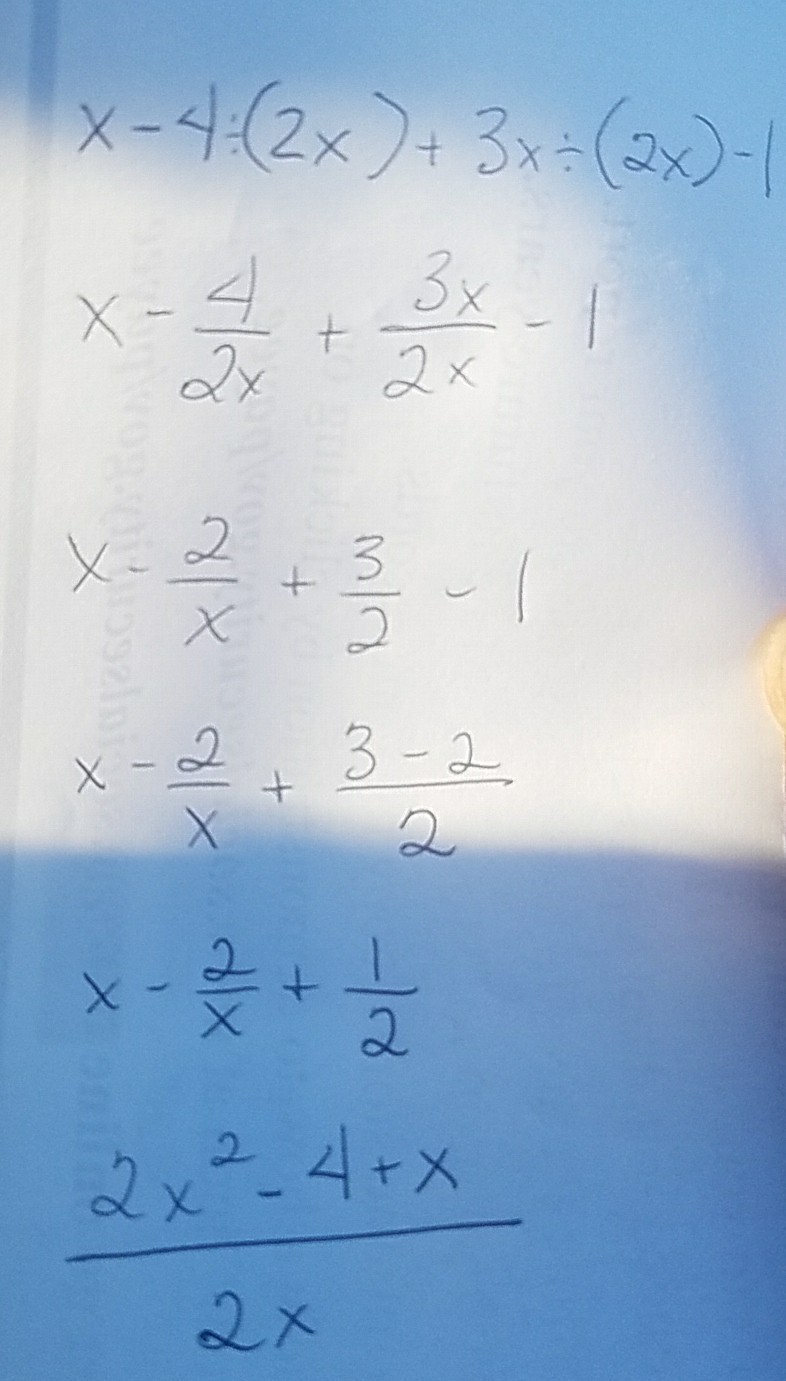 x - 4 ÷ (2x) + 3x ÷ (2x) - 1
x - 4/2x + 3x/2x - 1
x - 2/x + 3/2 - 1
x - 2/x + (3 - 2)/2
x - 2/x + 1/2
(2x² - 4 + x)/2x